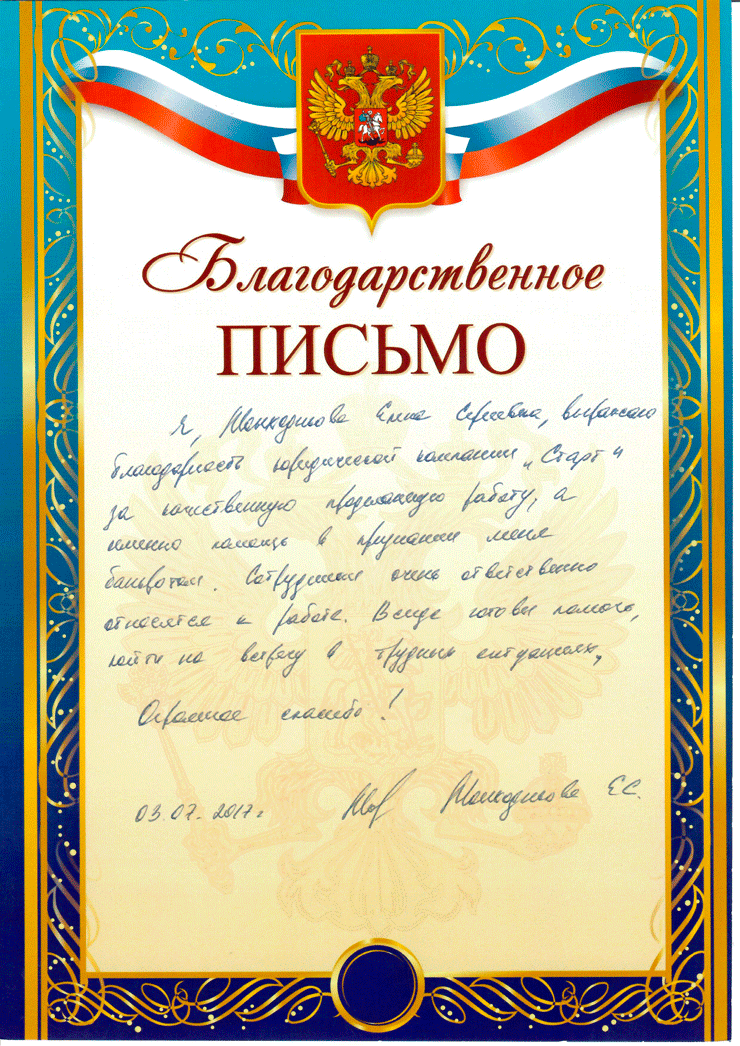 Благодарственное
ПИСЬМО
Я, Елена Сергеевна, выражаю
благодарность юридической компании „Старт“
за качественную проделанную работу, а
именно помощь в признании меня
банкротом. Сотрудники очень ответственно
относятся к работе. Всегда готовы помочь,
пойти на встречу в трудных ситуациях,
Огромное спасибо!
03.07.2017г. Е.С.